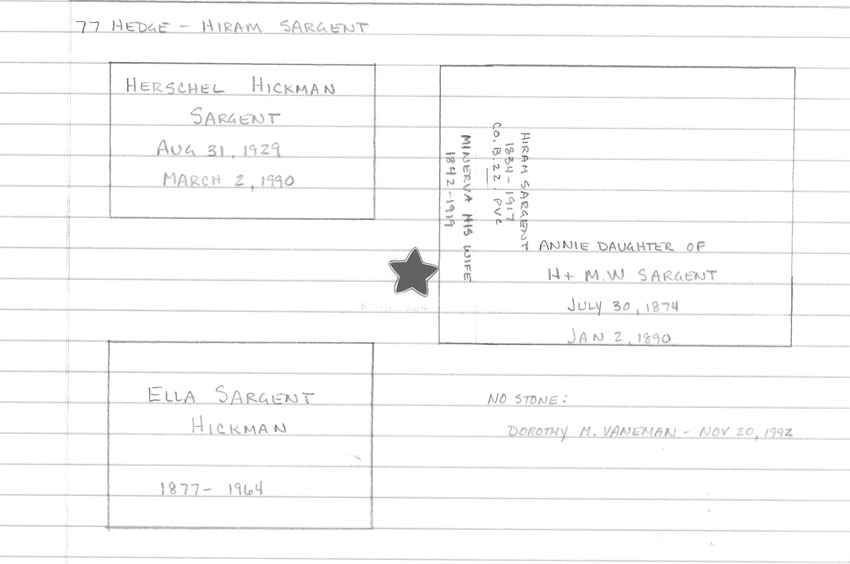 77 HEDGE - HIRAM SARGENT
HERSCHEL HICKMAN
SARGENT
AUG 31, 1929
MARCH 2, 1990
HIRAM SARGENT
1834-1917
CO. B. 22. PVC
MINERVA HIS WIFE
1842-1919
ANNIE DAUGHTER OF
H + M.W SARGENT
JULY 30, 1874
JAN 2, 1890
ELLA SARGENT
HICKMAN
1877- 1964
NO STONE:
DOROTHY M. VANEMAN - NOV 20, 1992